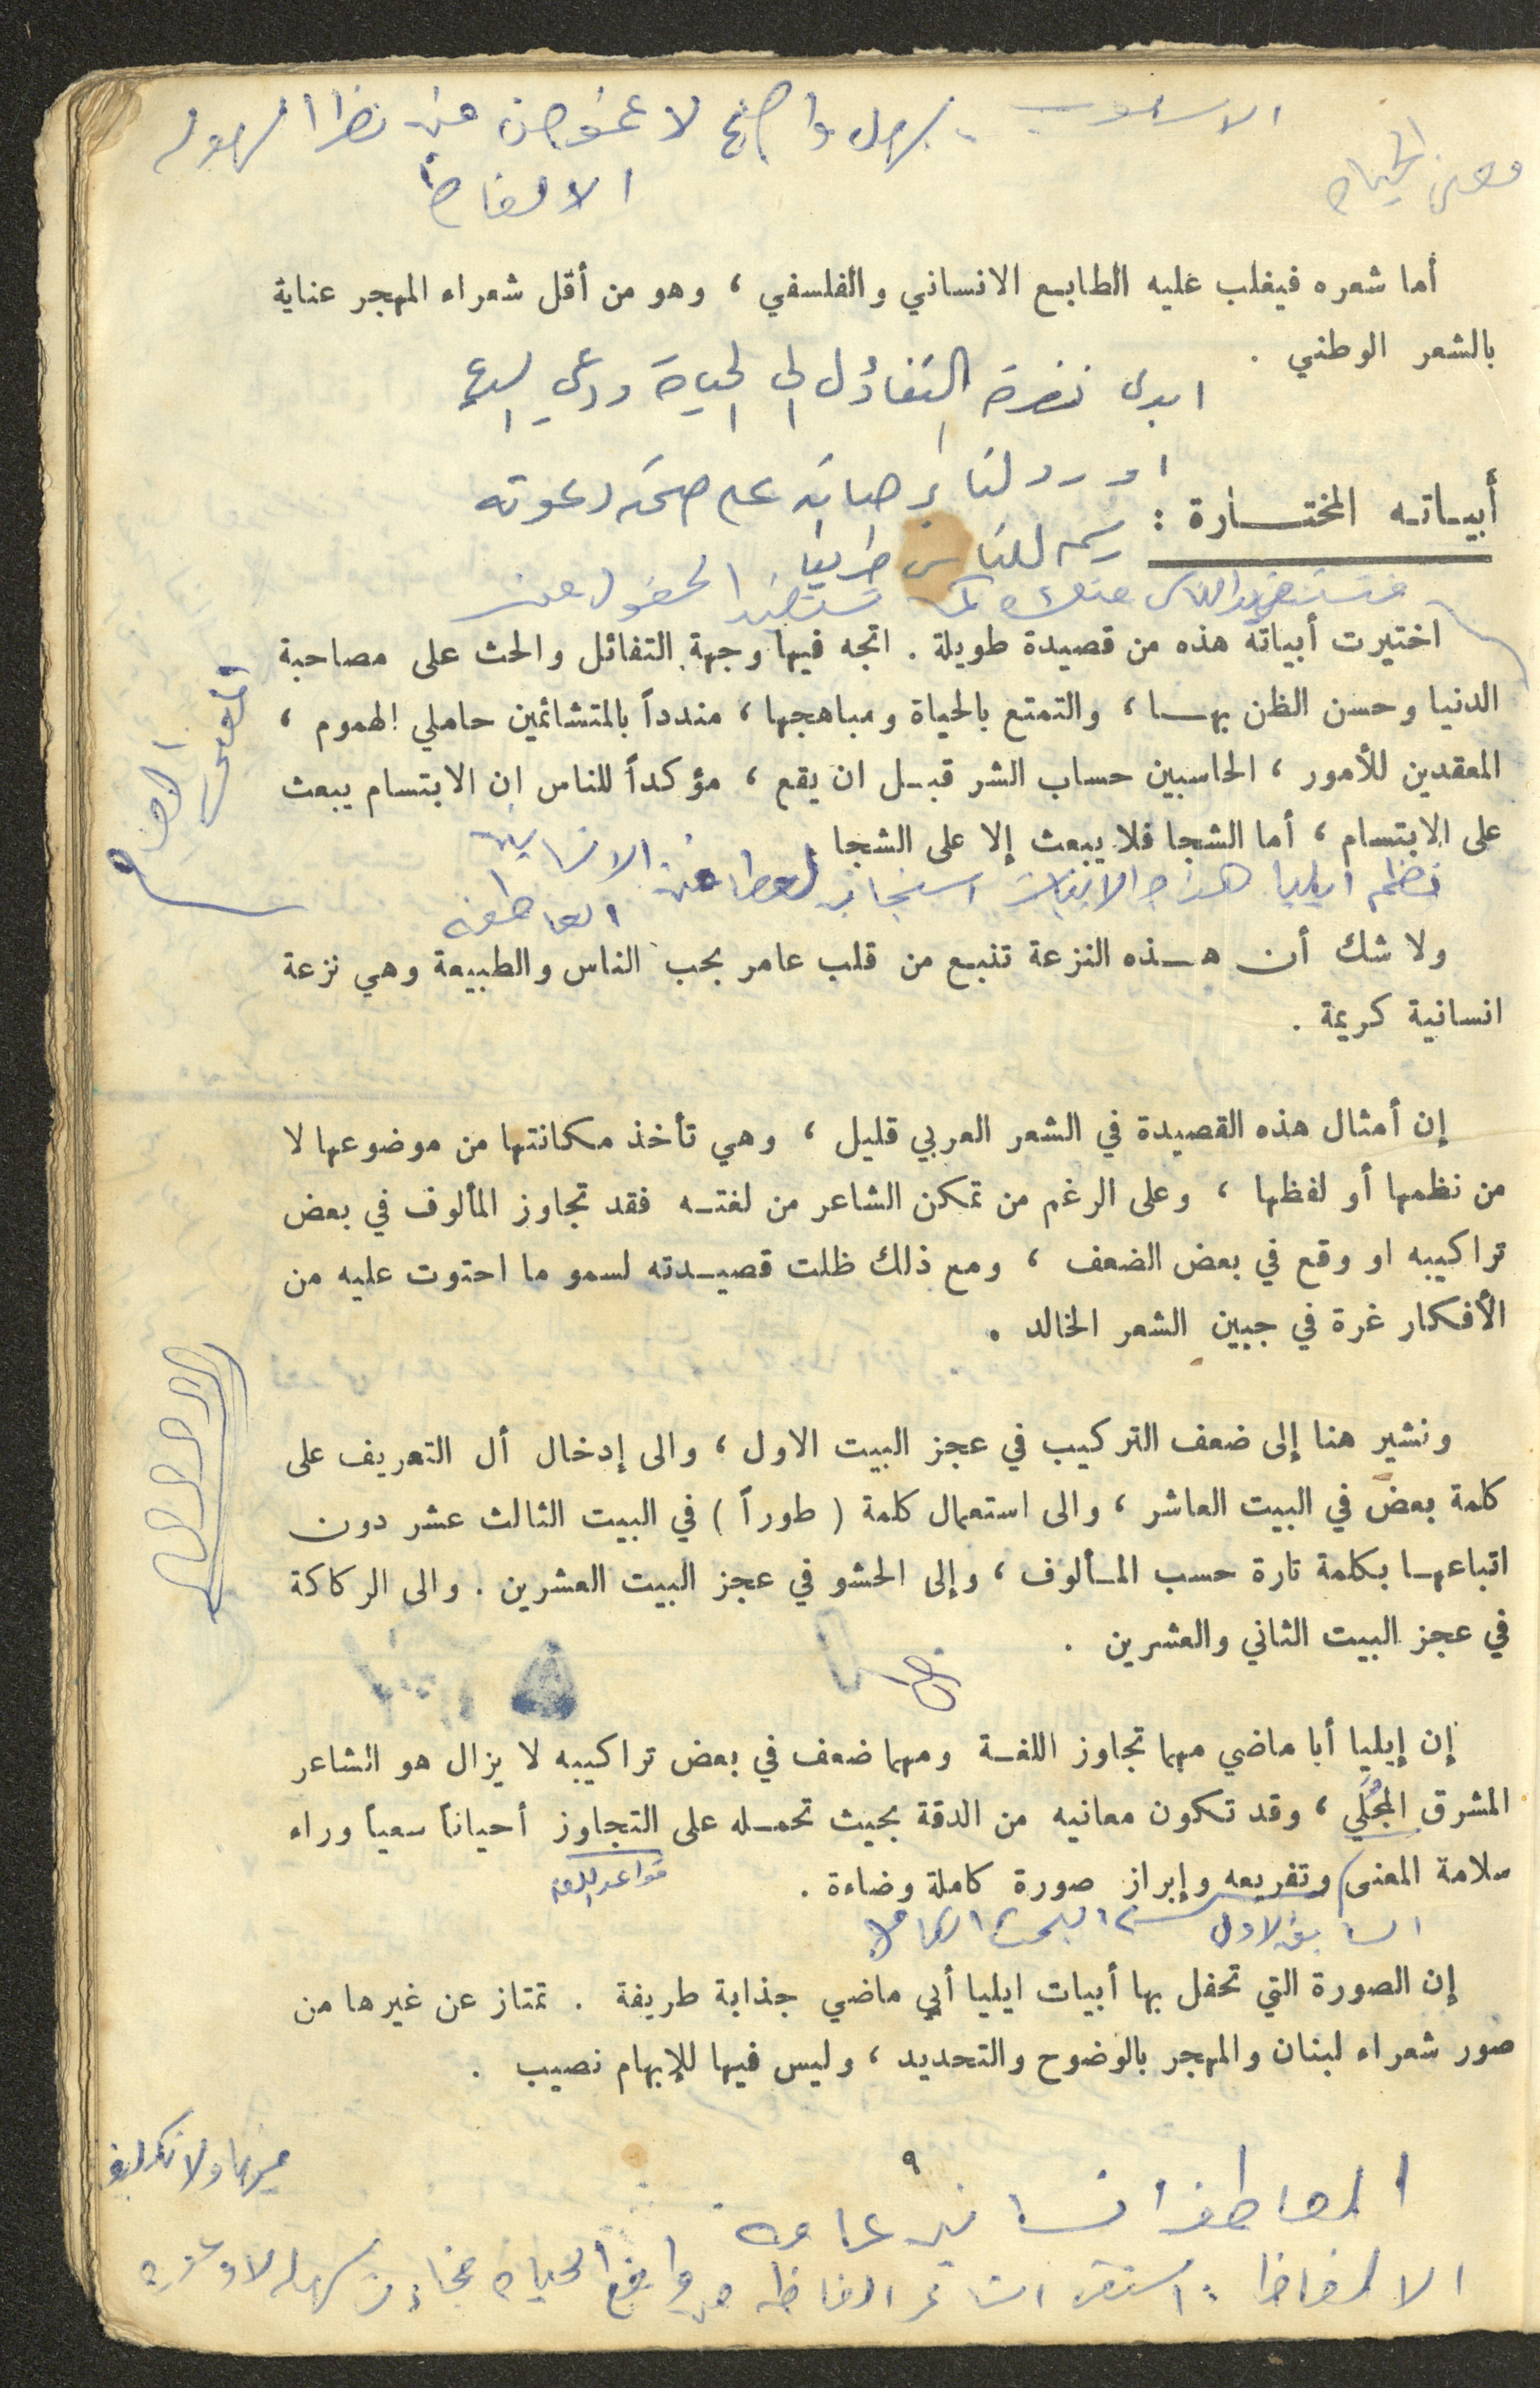 الاسلوب - سهل واضح لا غموض فيه نظرا لسهولة
الالفاظ
معنى الحياة
أما شعره فيغلب عليه الطابع الانساني والفلسفي ، وهو من أقل شعراء المهجر عناية
بالشعر الوطني .
ابدى نظرة التفاؤل الى الحياة ودعى اليها
اورد لنا برهانه على صحة دعوته
أبياته المختارة :
رسم للناس طريقا
اختيرت أبياته هذه من قصيدة طويلة . اتجه فيها وجهة التفائل والحث على مصاحبة
الدنيا وحسن الظن بها ، والتمتع بالحياة ومباهجها ، مندداً بالمتشائمين حاملي الهموم ،
المعقدين للأمور ، الحاسبين حساب الشر قبل ان يقع ، مؤكداً للناس ان الابتسام يبعث
على الابتسام ، أما الشجا فلا يبعث إلا على الشجا .
نظم ايليا هذه الابيات استجابة لعواطفه الانسانية
العاطفه
ولا شك أن هذه النزعة تنبع من قلب عامر بحب الناس والطبيعة وهي نزعة
انسانية كريمة .
إن أمثال هذه القصيدة في الشعر العربي قليل ، وهي تأخذ مكانتها من موضوعها لا
من نظمها أو لفظها ، وعلى الرغم من تمكن الشاعر من لغته فقد تجاوز المألوف في بعض
تراكيبه او وقع في بعض الضعف ، ومع ذلك ظلت قصيدته لسمو ما احتوت عليه من
الأفكار غرة في جبين الشعر الخالد .
ونشير هنا إلى ضعف التركيب في عجز البيت الاول ، والى إدخال أل التعريف على
كلمة بعض في البيت العاشر ، والى استعمال كلمة ( طوراً ) في البيت الثالث عشر دون
اتباعها بكلمة تارة حسب المألوف ، وإلى الحشو في عجز البيت العشرين . والى الركاكة
في عجز البيت الثاني والعشرين .
إن إيليا أبا ماضي مهما تجاوز اللغة ومهما ضعف في بعض تراكيبه لا يزال هو الشاعر
المشرق المجُلَي ، وقد تكون معانيه من الدقة بحيث تحمله على التجاوز أحياناً سعياً وراء
سلامة المعنى وتفريعه وإبراز صورة كاملة وضاءة .
قواعد اللغة
السابق الاول
إن الصورة التي تحفل بها أبيات ايليا أبي ماضي جذابة طريفة . تمتاز عن غيرها من
صور شعراء لبنان والمهجر بالوضوح والتحديد ، وليس فيها للإبهام نصيب .
٩
العاطفة انسانيه عامه
الالفاظ : استقى الشاعر الفاظه من واقع الحياة فجاءت سهله لا وعورة
فيها ولا تكلف